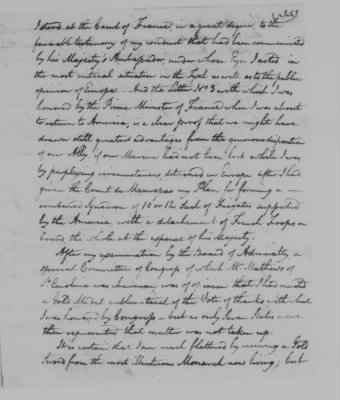 333
I stood at the Court of France, in a great degree, to the
favorable testimony of my conduct that had been communicated
by his Majesty's Ambassador, under whose Eye I acted in
the most critical situation in the Texel as well as to the public
opinion of Europe. And the Letter No 3 with which I was
honoured by the Prime Minister of France when I was about
to return to America, is a clear proof that we might have
drawn still greater advantages from the generous disposition
of our Ally, if our Marine had not been lost while I was
by perplexing circumstances detained in Europe after I had
given the Count de Maurepas my Plan for forming a
combined Squadron of 10 or 12 Sail of Frigates supported
by the America with a detachment of French Troops on
board the whole at the expense of his Majesty.
After my examination by the Board of Admiralty, a
special Committee of Congress of which Mr Mathews of
So Carolina was chairman, was of opinion that I had merited
a Gold Medal instead of the Vote of thanks with which
I was honoured by Congress — but as only Seven States were
then represented that matter was not taken up.
It is certain that I am much flattered by receiving a Gold
Sword from the most Illustrious Monarch now living; but